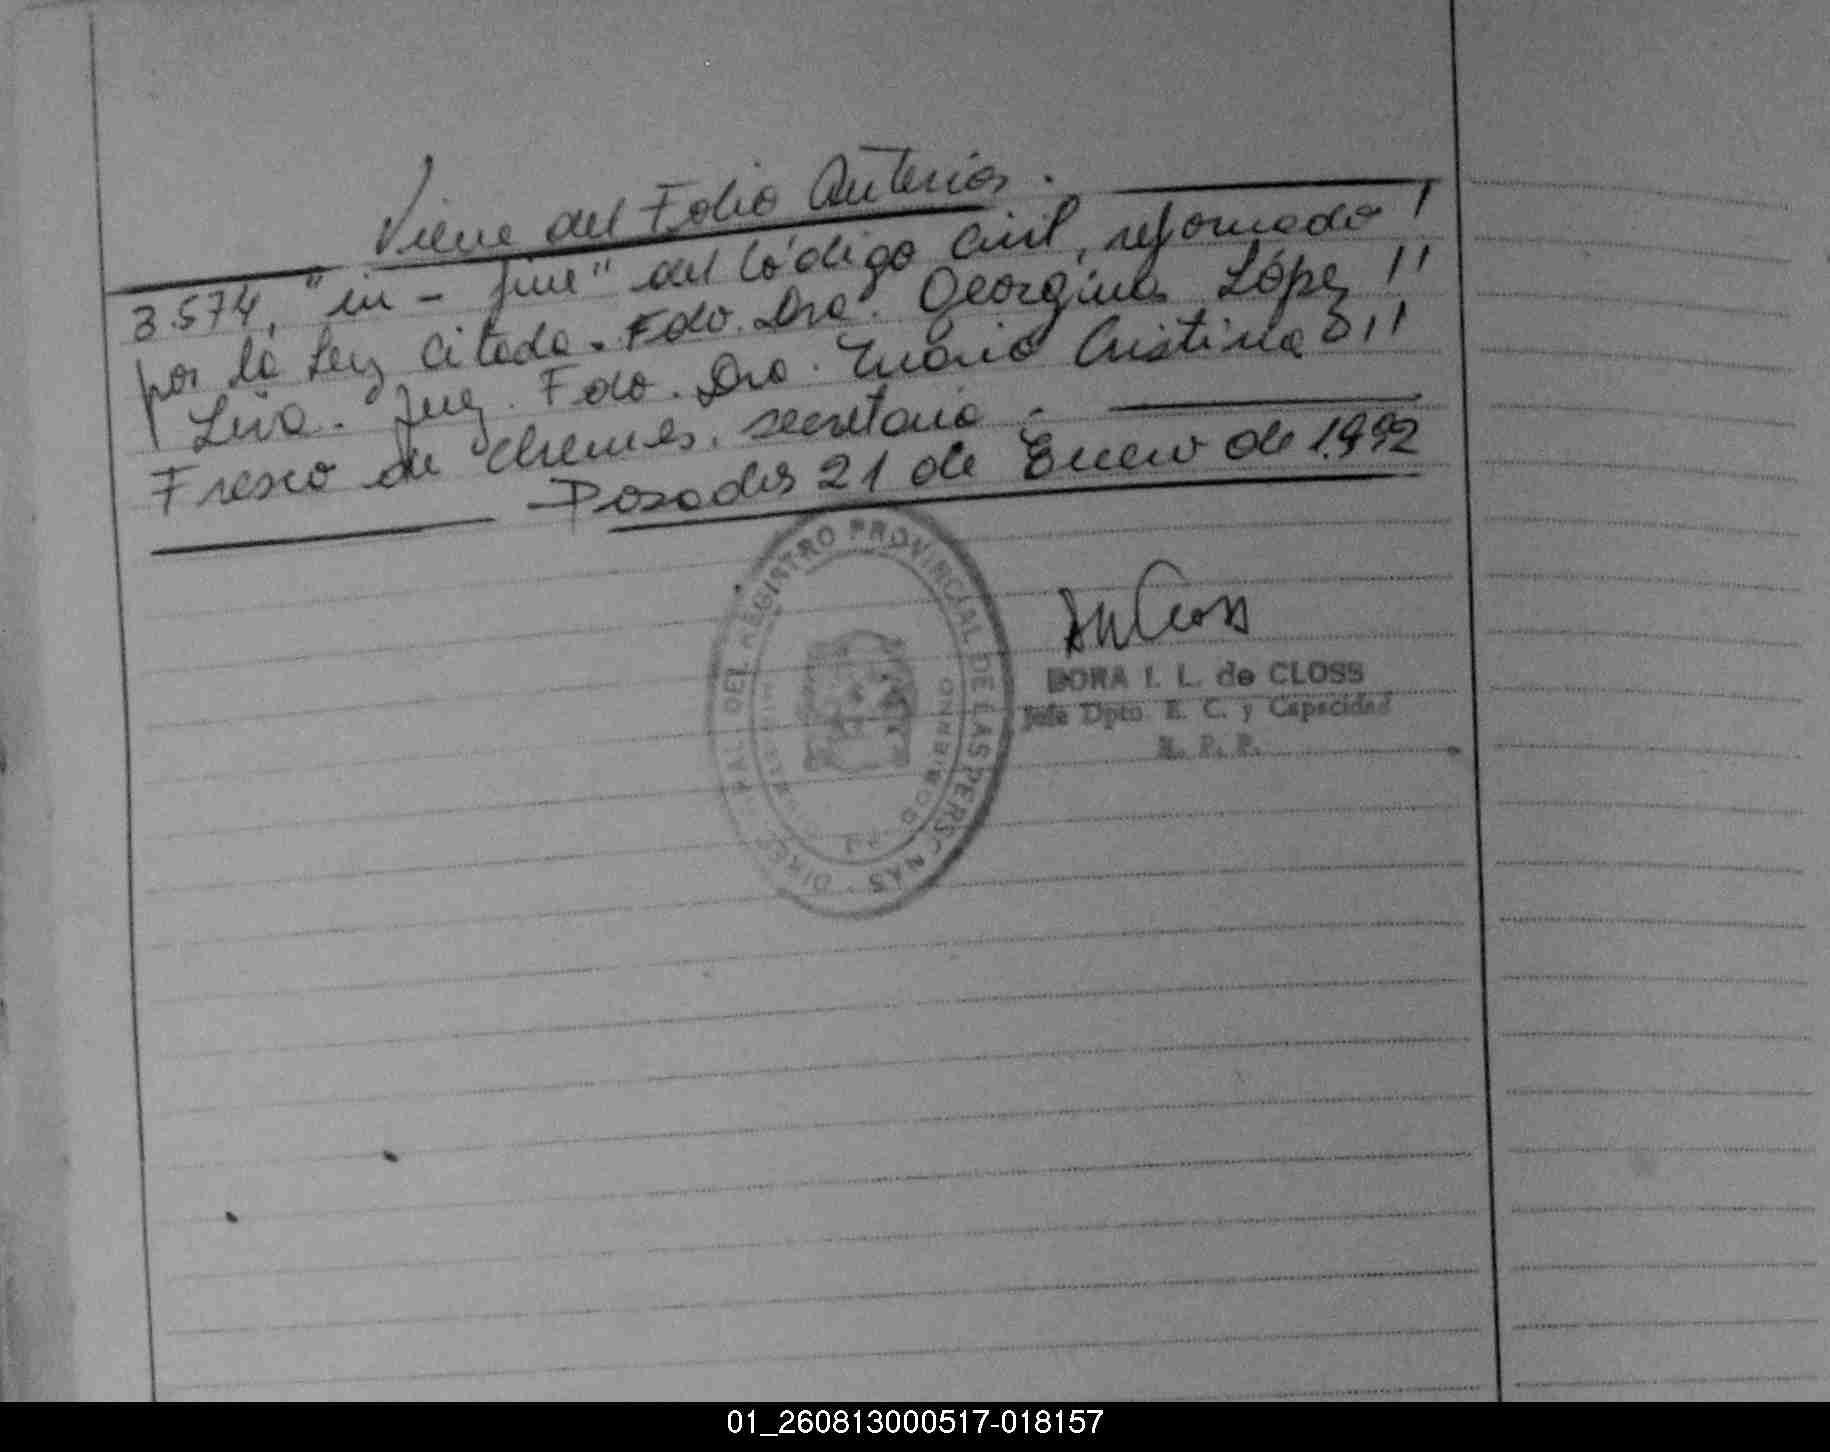 Viene del Folio Anterior.
3.574, "in - fine" del Código Civil, reformado!
por la Ley citada. Fdo. Dra. Georgina López!!
Leiva. Juez. Fdo. Dra. María Cristina!!
Fresco de Chemes. secretaria.
Posadas 21 de Enero de 1.992
REGISTRO PROVINCIAL DE LAS PERSONAS
GOBIERNO
DORA I. L. de CLOSS
Jefe Dpto. E. C. y Capacidad
R. P. P.
01_260813000517-018157